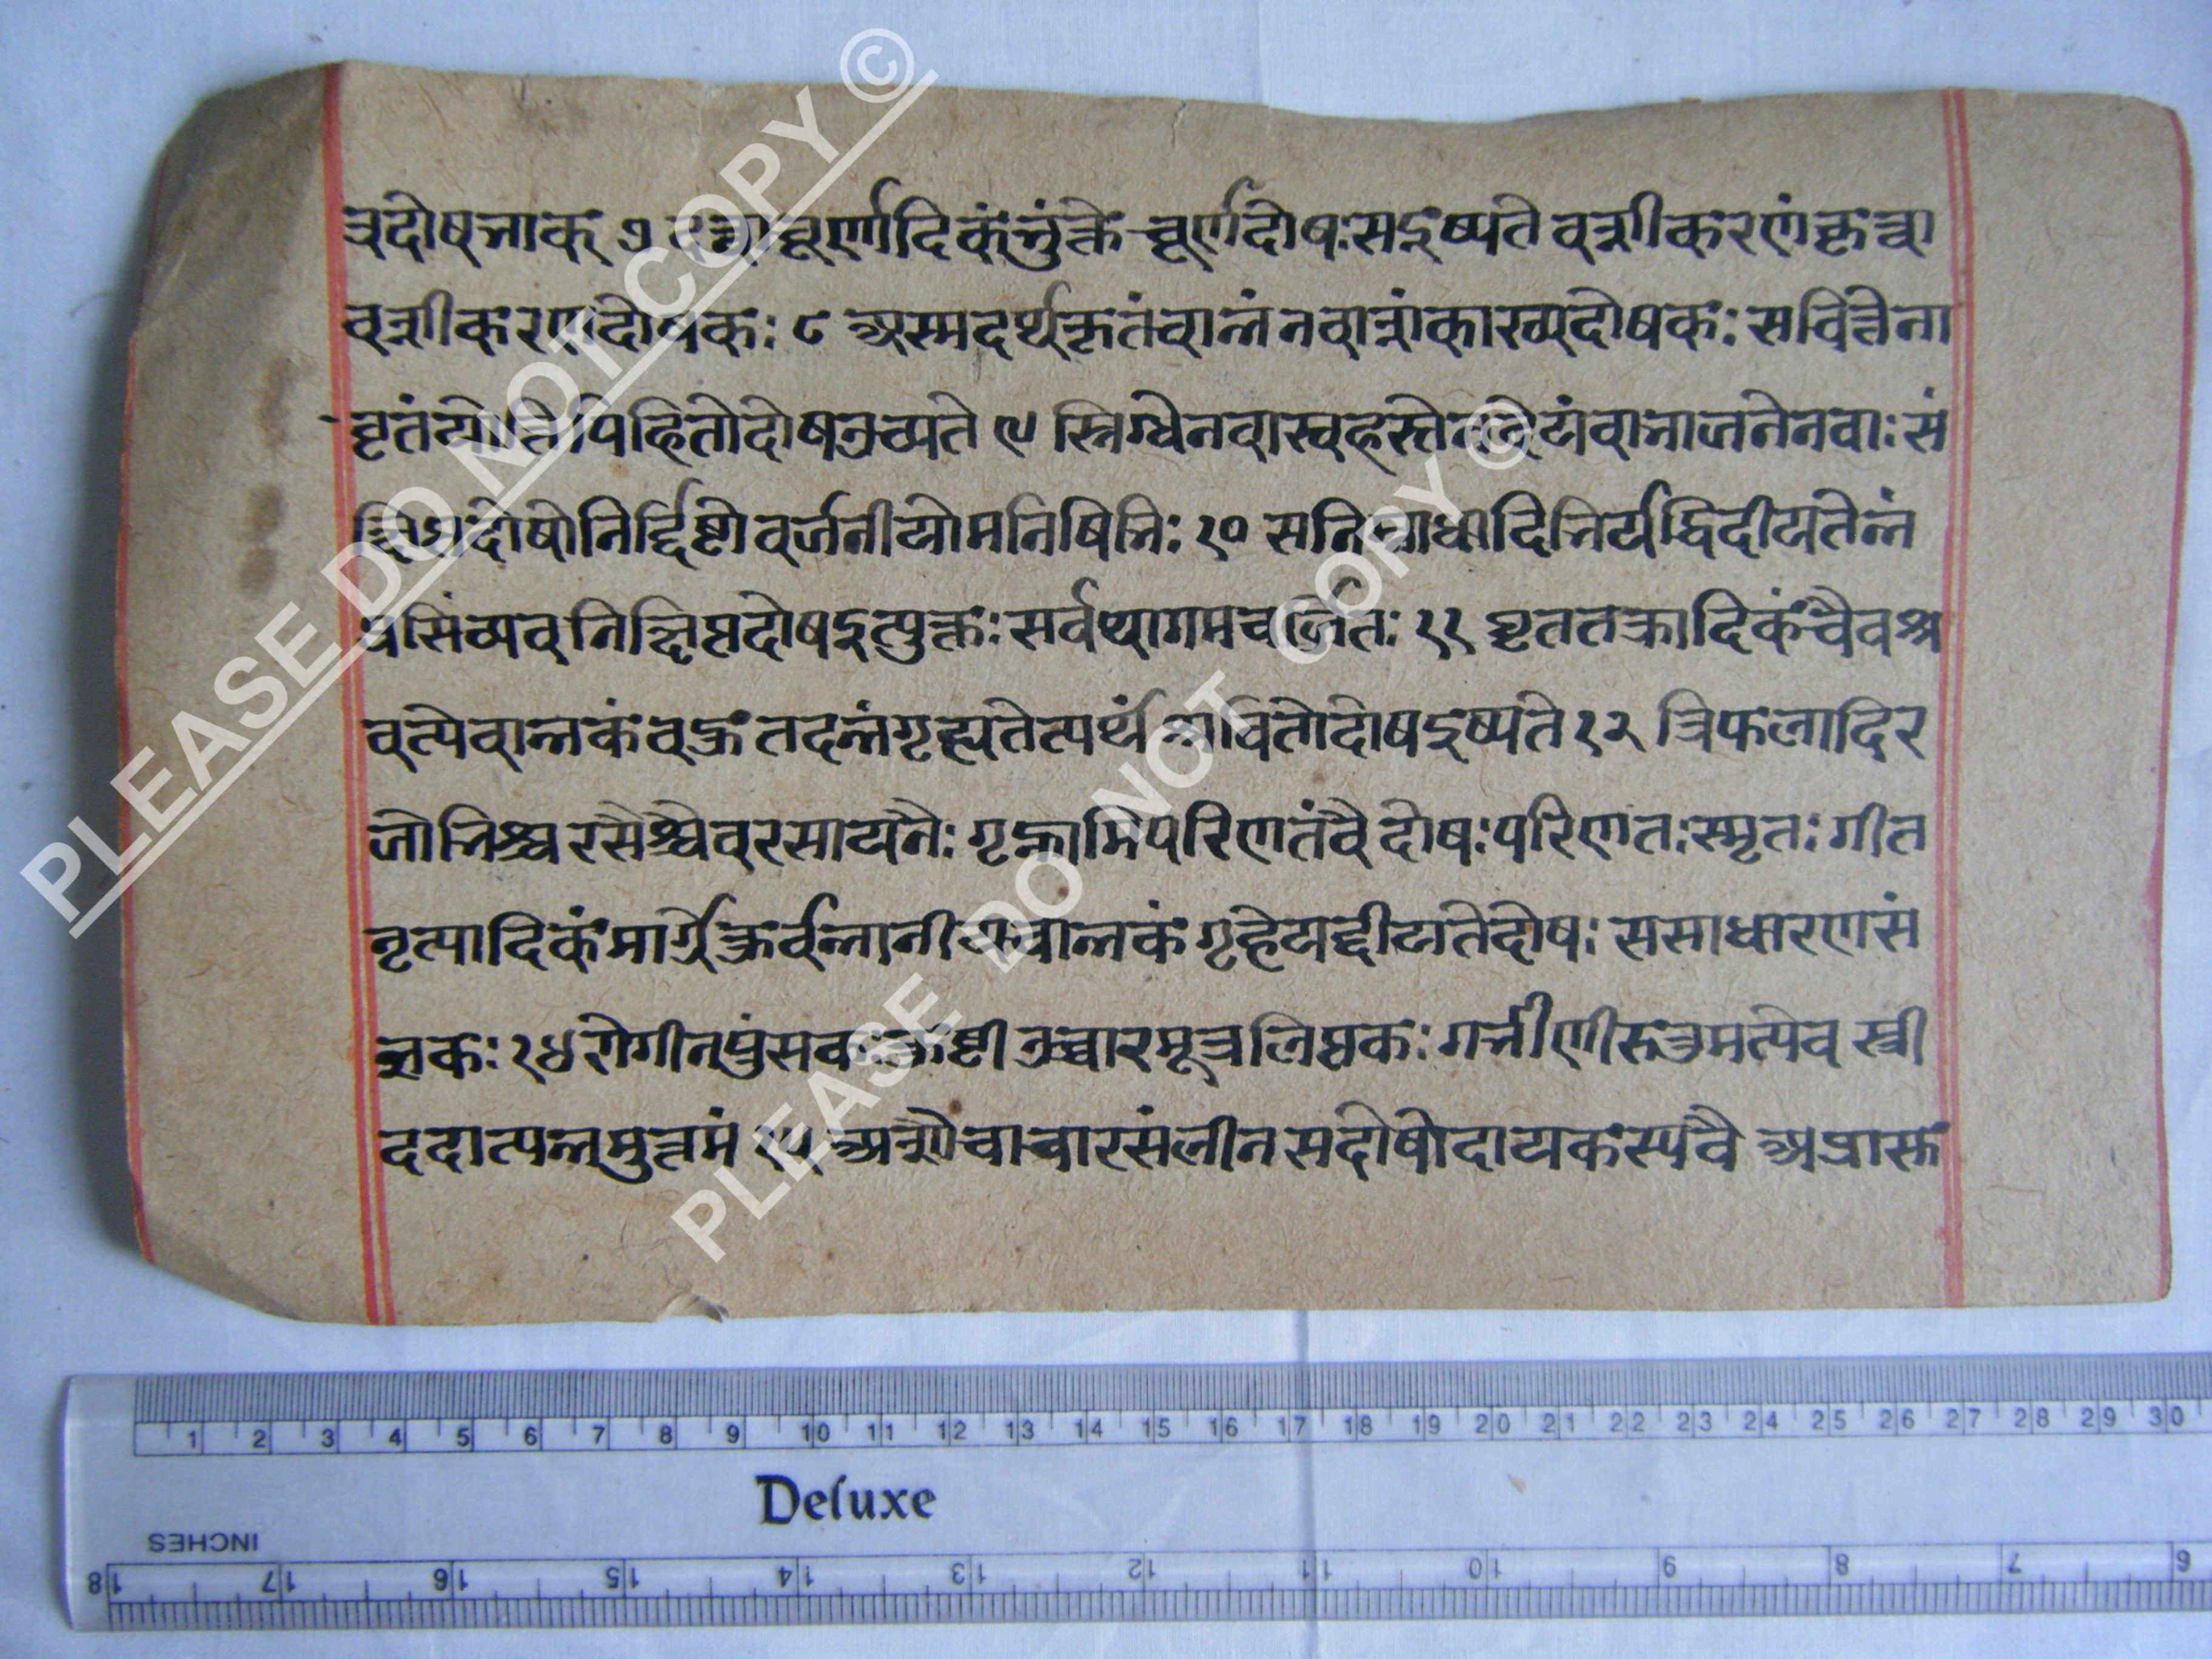 त्रदोषभाक् ७ दत्वा चूर्णादिकं भुंक्ते चूर्णदोषः सदुष्यते वशीकरणं कृत्वा
वशीकरणदोषकः ८ अस्मदर्थकृतं वान्नं नवान्नं कारव्यदोषकः सचित्तेना
वृतं योति पिहितो दोषउच्यते ९ स्निग्धेन वा स्वहस्तेन देयं वा भाजनेन वाः सं
दोषो निर्द्दिष्टो वर्जनीयो मनिषिभिः १० सचि दिभिर्यद्विदीयतेन्नं
व निक्षिप्तदोषइत्युक्तः सर्वथागमवर्जितः ११ घृततक्रादिकं चैव श्र
वत्येवान्नकं वक्रं तदन्नं गृह्यतेत्यर्थं श्रावितो दोषदुष्यते १२ त्रिफलादिर
जोभिश्च रसैश्चैव रसायनैः गृह्णामि परिणतं वै दोषः परिणतः स्मृतः गीत
नृत्यादिकं मार्गे कुर्वन्नानीय चान्नकं गृहे यद्दीयते दोषः स साधारणसं
ज्ञकः १४ रोगी नपुंसकः कुष्टी उच्चारमूत्रलिप्तकः गर्भीणी ऋतुमत्येव स्त्री
ददात्यन्नमुत्तमं १५ अशौचाचारसंलीन सदोषो दायकस्य वै अप्रासु
PLEASE DO NOT COPY ©
PLEASE DO NOT COPY ©
1 2 3 4 5 6 7 8 9 10 11 12 13 14 15 16 17 18 19 20 21 22 23 24 25 26 27 28 29 30
Deluxe
INCHES
18 17 16 15 14 13 12 11 10 9 8 7 6